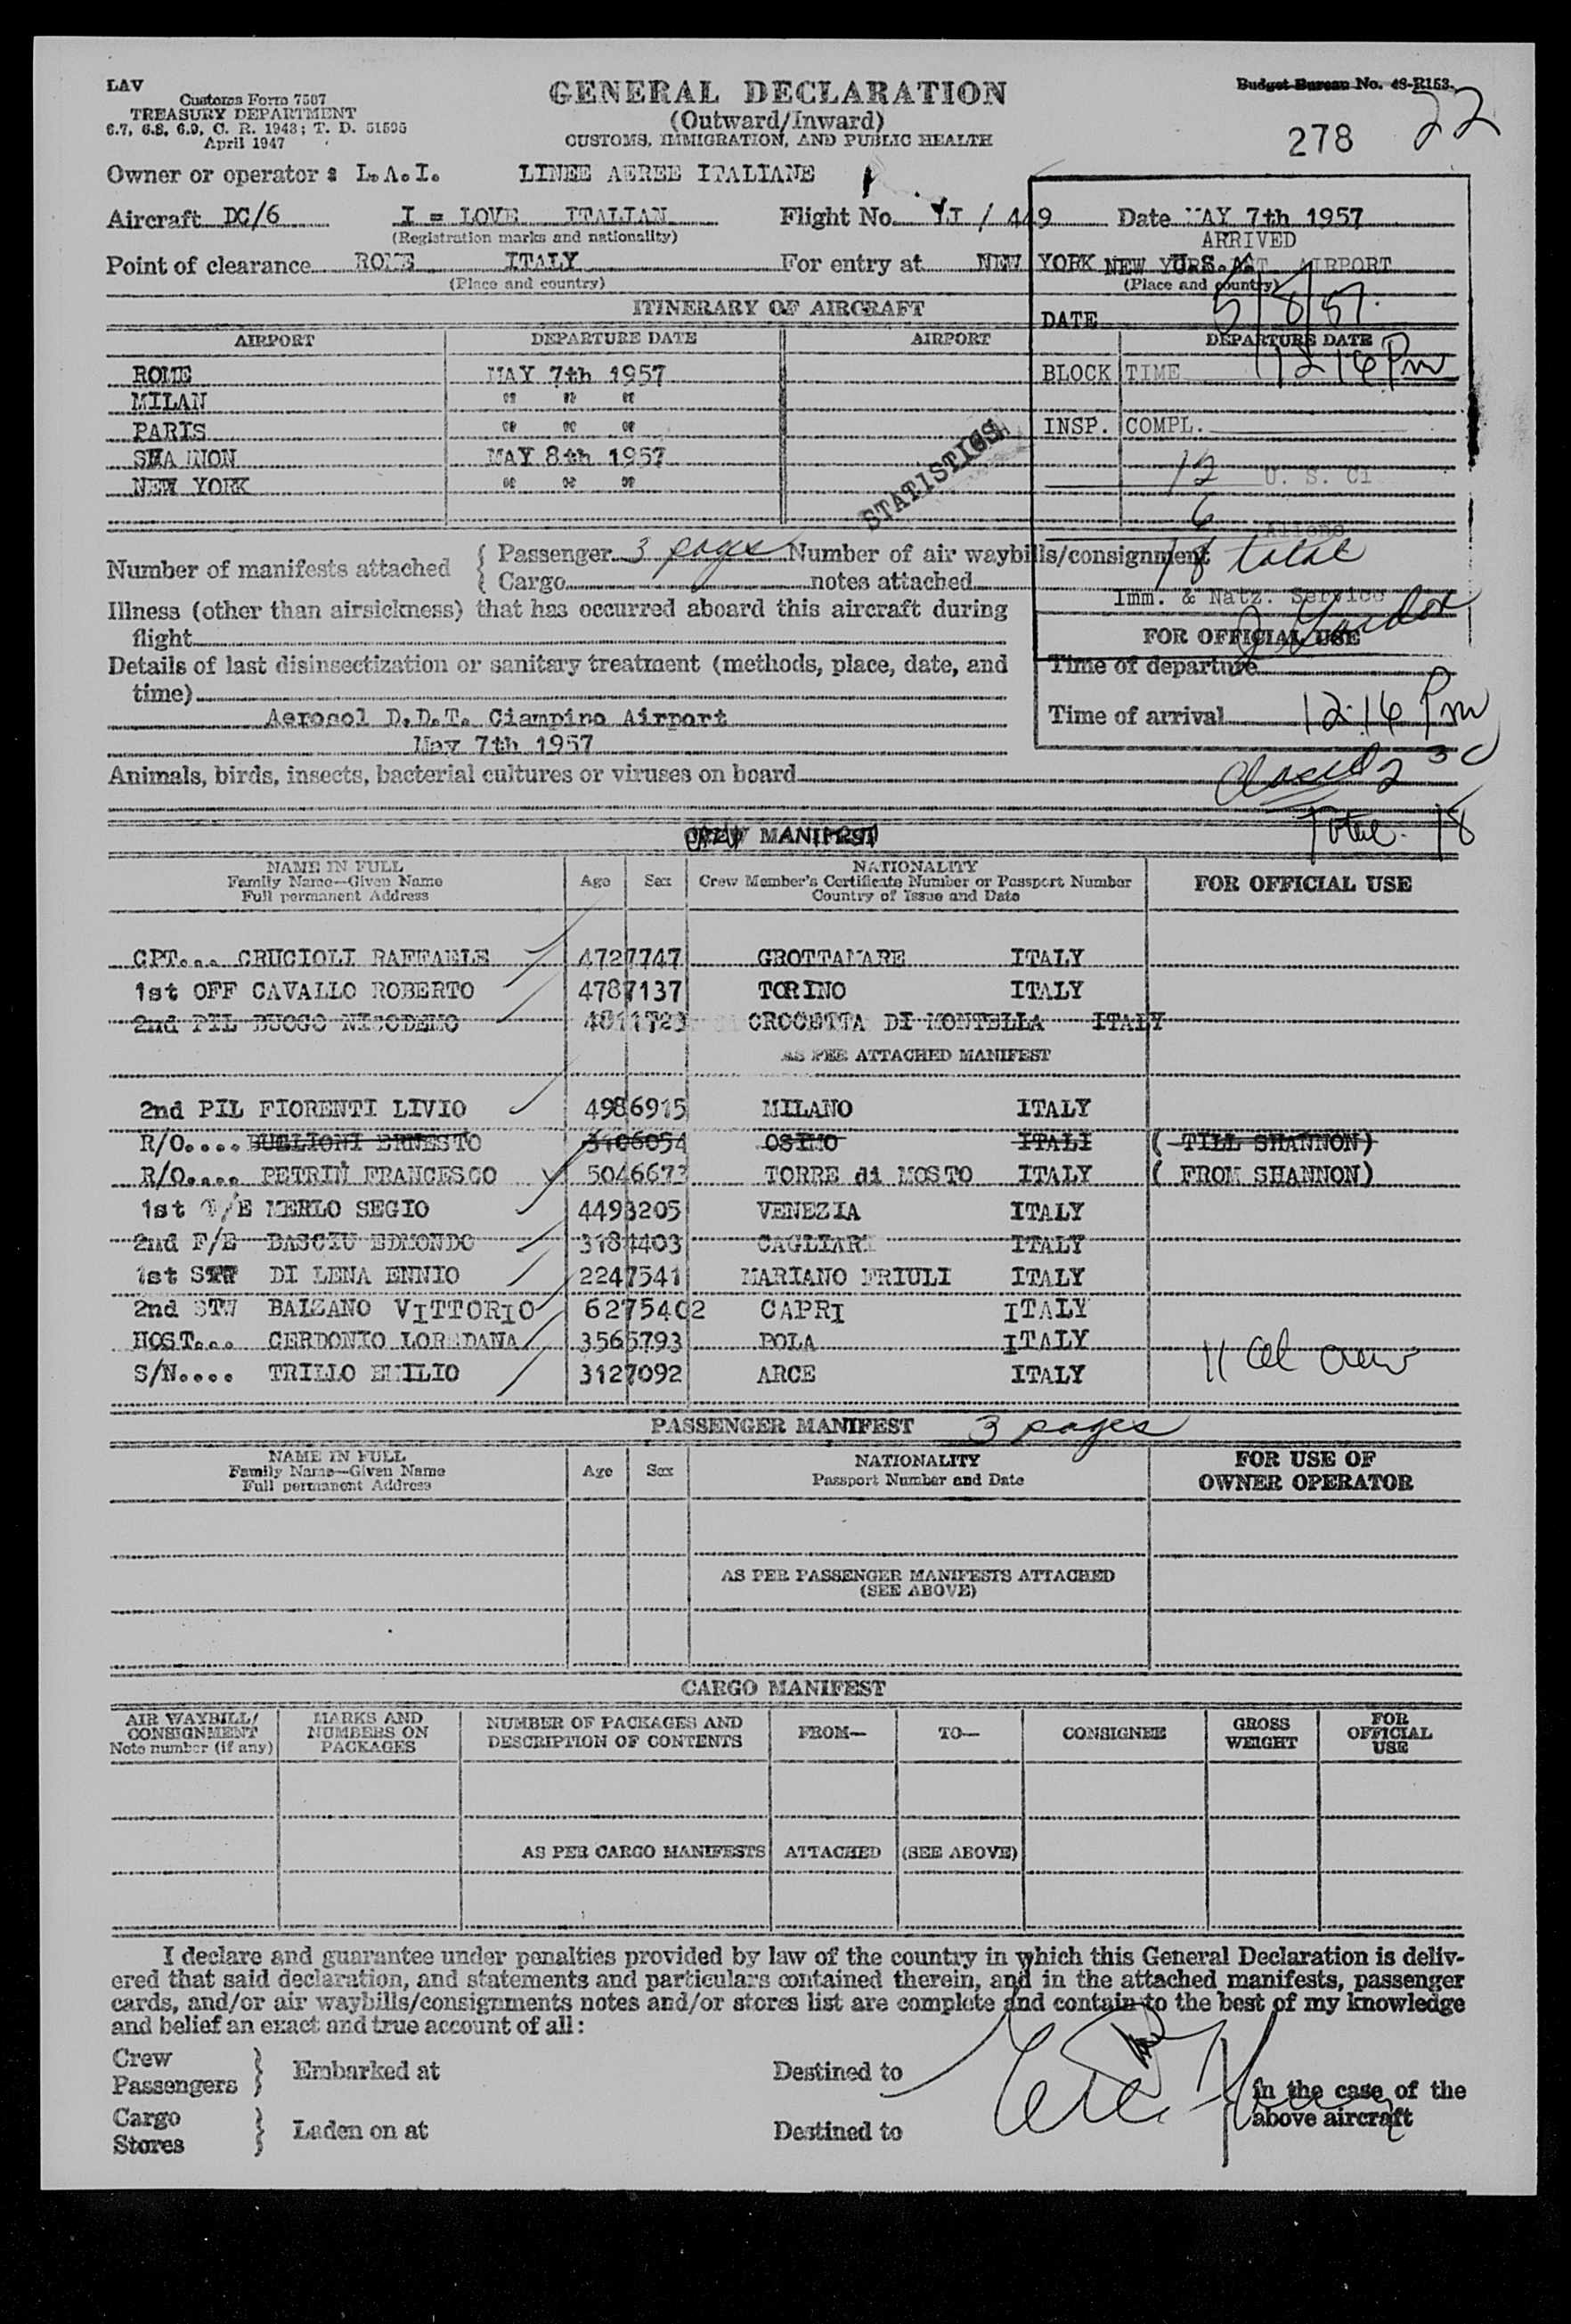 LAV
Customs Form 7507
TREASURY DEPARTMENT
6.7, 6.8, 6.9, C. R. 1943; T. D. 51595
April 1947
GENERAL DECLARATION
(Outward/Inward)
CUSTOMS, IMMIGRATION, AND PUBLIC HEALTH
Budget Bureau No. 48-R153.
22
278
Owner or operator : L.A.I. LINEE AEREE ITALIANE
Aircraft DC/6 I = LOVE ITALIAN Flight No. / 449 Date MAY 7th 1957
(Registration marks and nationality)
ARRIVED
Point of clearance ROME ITALY For entry at NEW YORK U.S.A.
NEW YORK AIRPORT
(Place and country) (Place and country)
ITINERARY OF AIRCRAFT
DATE 5/8/57
AIRPORT DEPARTURE DATE AIRPORT DEPARTURE DATE
ROME MAY 7th 1957
BLOCK TIME 1216 Pm
MILAN " " "
PARIS " " "
INSP. COMPL.
SHANNON MAY 8th 1957
STATISTICS
12 U. S. Ci
NEW YORK " " "
6 Aliens
Number of manifests attached { Passenger 3 pages Number of air waybills/consignment
{ Cargo notes attached
18 total
Illness (other than airsickness) that has occurred aboard this aircraft during
flight
Imm. & Natz. Service
FOR OFFICIAL USE
Details of last disinsectization or sanitary treatment (methods, place, date, and
time)
Time of departure
Aerosol D.D.T. Ciampino Airport
May 7th 1957
Time of arrival 12:16 Pm
Animals, birds, insects, bacterial cultures or viruses on board
Closed 2 30
Total 18
CREW MANIFEST
NAME IN FULL
Family Name—Given Name
Full permanent Address
Age Sex
NATIONALITY
Crew Member's Certificate Number or Passport Number
Country of Issue and Date
FOR OFFICIAL USE
CPT... CRUCIOLI RAFFAELE 4727747 GROTTAMARE ITALY
1st OFF CAVALLO ROBERTO 4787137 TORINO ITALY
2nd PIL BUOGO NICODEMO 4811723 CROCETTA DI MONTELLA ITALY
AS PER ATTACHED MANIFEST
2nd PIL FIORENTI LIVIO 4986915 MILANO ITALY
R/O.... BUGLIONI ERNESTO 3106054 OSIMO ITALI ( TILL SHANNON)
R/O.... PETRIN FRANCESCO 5046673 TORRE di MOSTO ITALY ( FROM SHANNON)
1st F/E MERLO SEGIO 4493205 VENEZIA ITALY
2nd F/E BASCIU EDMONDO 3184403 CAGLIARI ITALY
1st STW DI LENA ENNIO 2247541 MARIANO FRIULI ITALY
2nd STW BALZANO VITTORIO 6275402 CAPRI ITALY
HOST... CERDONIO LOREDANA 3565793 POLA ITALY
S/N.... TRILLO EMILIO 3127092 ARCE ITALY
11 al crew
PASSENGER MANIFEST 3 pages
NAME IN FULL
Family Name—Given Name
Full permanent Address
Age Sex
NATIONALITY
Passport Number and Date
FOR USE OF
OWNER OPERATOR
AS PER PASSENGER MANIFESTS ATTACHED
(SEE ABOVE)
CARGO MANIFEST
AIR WAYBILL/
CONSIGNMENT
Note number (if any)
MARKS AND
NUMBERS ON
PACKAGES
NUMBER OF PACKAGES AND
DESCRIPTION OF CONTENTS
FROM—
TO—
CONSIGNEE
GROSS
WEIGHT
FOR
OFFICIAL
USE
AS PER CARGO MANIFESTS ATTACHED (SEE ABOVE)
I declare and guarantee under penalties provided by law of the country in which this General Declaration is deliv-
ered that said declaration, and statements and particulars contained therein, and in the attached manifests, passenger
cards, and/or air waybills/consignments notes and/or stores list are complete and contain to the best of my knowledge
and belief an exact and true account of all:
Crew
Passengers } Embarked at Destined to
Cargo
Stores } Laden on at Destined to
} in the case of the
above aircraft